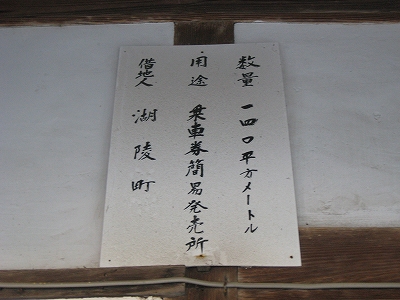 数量 一四〇平方メートル
用途 乗車券簡易発売所
借地人 湖陵町